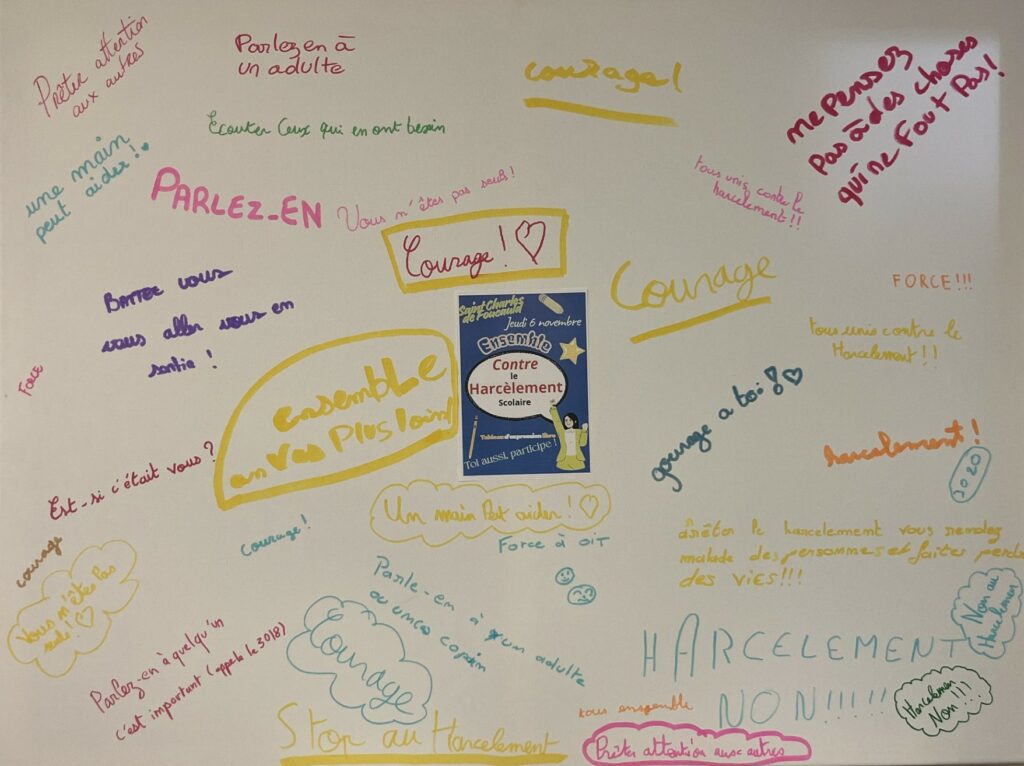 Prêter attention
aux autres
Parlez en à
un adulte
courage!
ne pensez
pas à des choses
qui ne Fout Pas!
Ecouter Ceux qui en ont besoin
une main
peut aider!
PARLEZ-EN
Vous n'êtes pas seuls!
tous unis contre le
harcelement!!
Courage!
Courage
FORCE!!!
Battez vous
vous aller vous en
sortir!
tous unis contre le
Harcelement!!
Force
ensemble
on vas Plus loin!
Saint Charles
de Foucauld
Jeudi 6 novembre
Ensemble
Contre
le
Harcèlement
Scolaire
Tableau d'expression libre
Toi aussi, participe !
courage a toi!
harcelement!
3020
Est-si c'était vous?
Un main Peut aider!
courage
Courage!
Force à oiT
Arrêter le harcelement vous rendez
malade des personnes et faites perdre
des vies!!!
Vous n'êtes Pas
seul!
Parle-en à qu'un adulte
ou un(e) copain
Non au
Harcelemen
Parlez-en à quelqu'un
c'est important (appele le 3018)
Courage
HARCELEMENT
NON!!!!!
Harcelemen
Non!!!
tous ensemble
Stop au Harcelement
Prêter attention aux autres